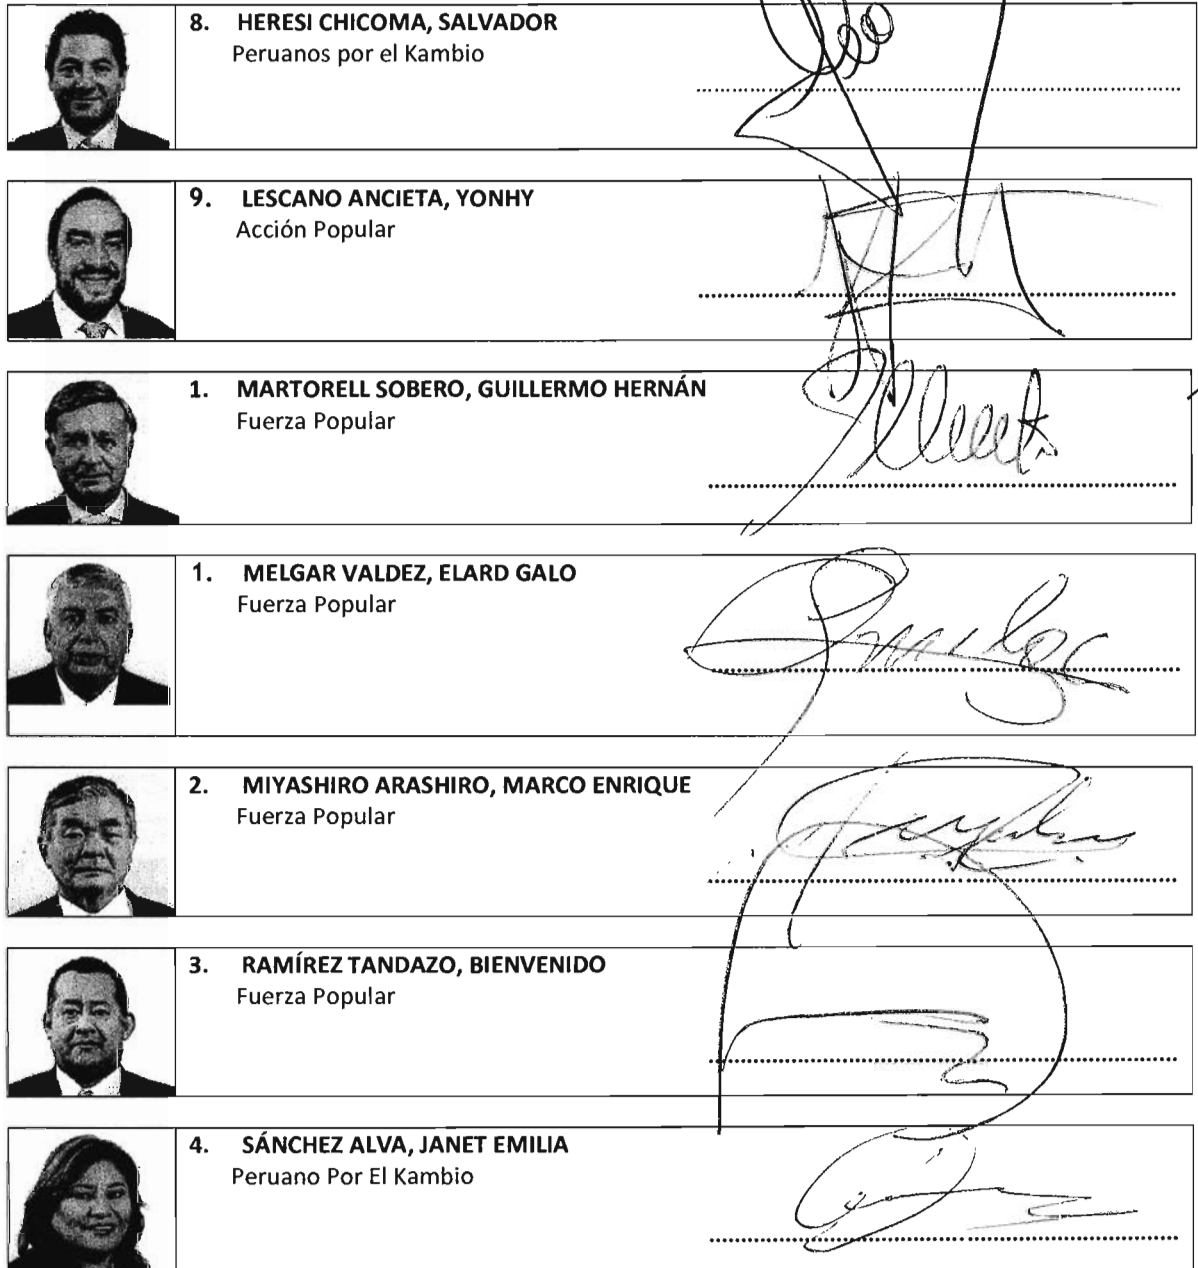 8. HERESI CHICOMA, SALVADOR
Peruanos por el Kambio
9. LESCANO ANCIETA, YONHY
Acción Popular
1. MARTORELL SOBERO, GUILLERMO HERNÁN
Fuerza Popular
1. MELGAR VALDEZ, ELARD GALO
Fuerza Popular
2. MIYASHIRO ARASHIRO, MARCO ENRIQUE
Fuerza Popular
3. RAMÍREZ TANDAZO, BIENVENIDO
Fuerza Popular
4. SÁNCHEZ ALVA, JANET EMILIA
Peruano Por El Kambio